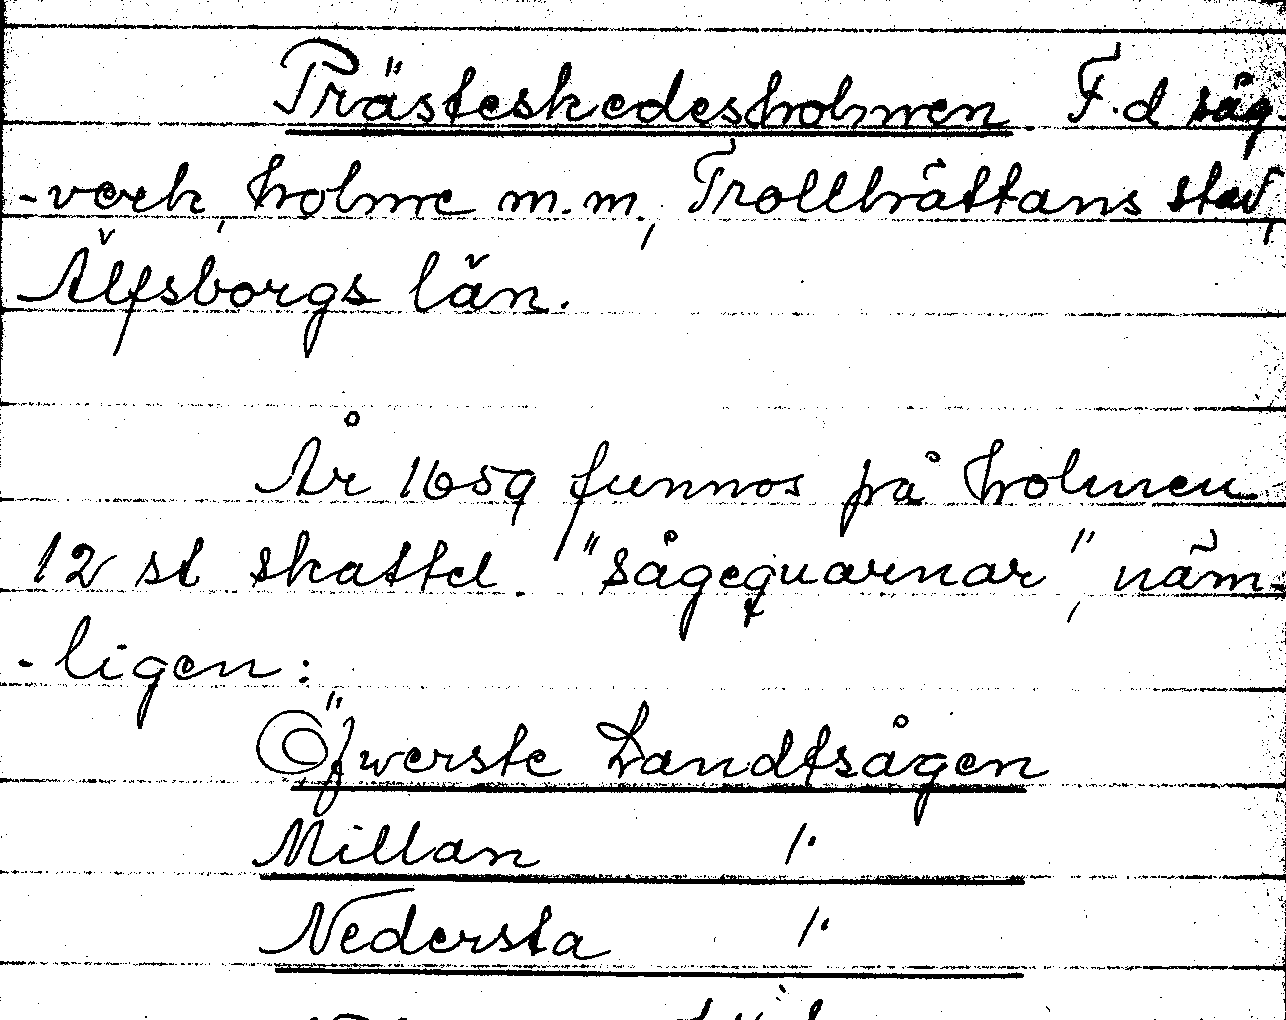 Prästeskedesholmen F.d såg-
-verk, holme m.m, Trollhättans stad,
Älfsborgs län.
År 1659 funnos på holmen
12 st skattel. "sågequarnar", näm-
-ligen:
Öfwerste Landtsågen
Millan "
Nedersta "